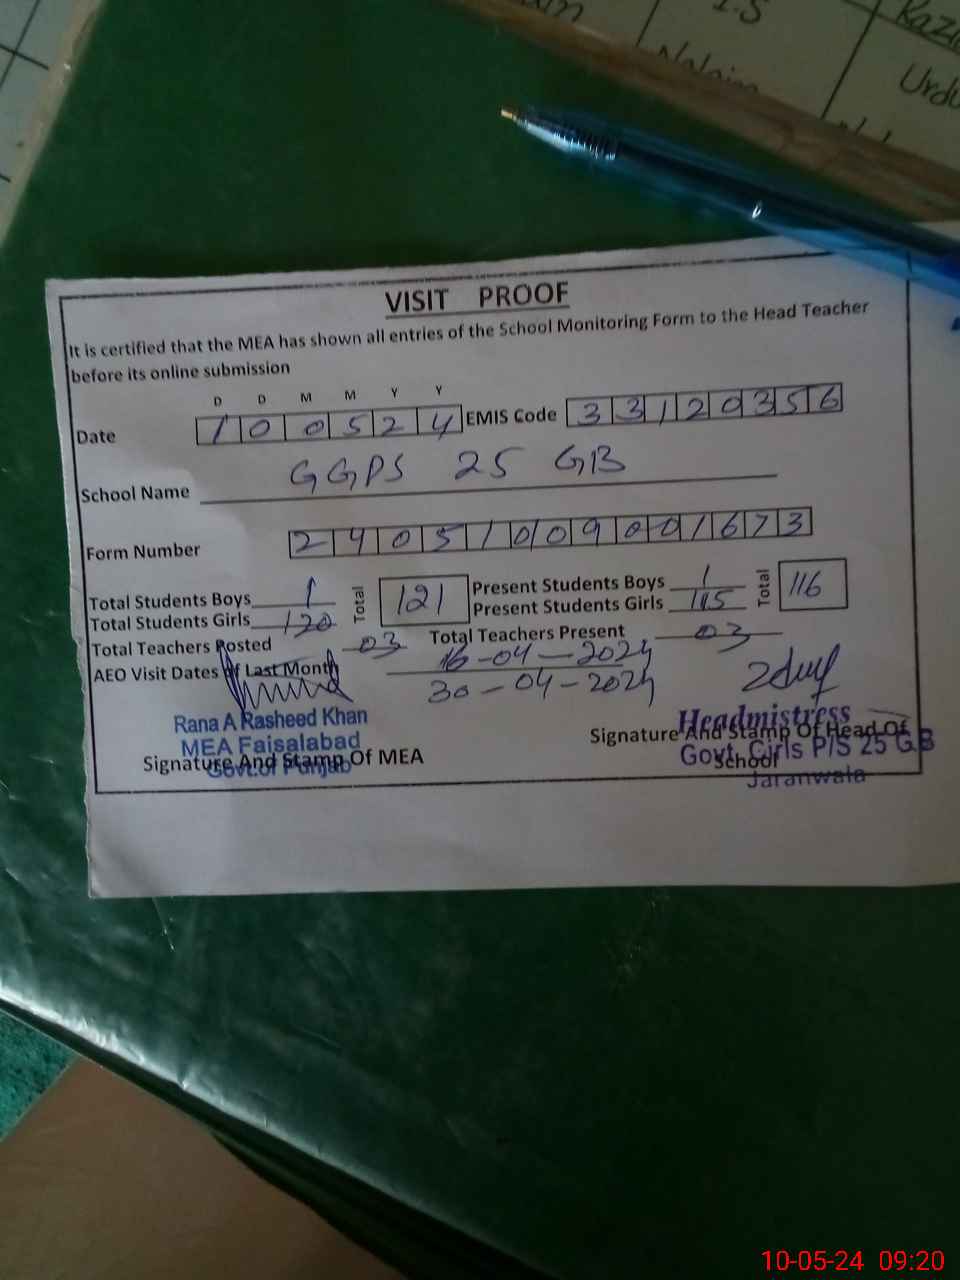 I.S
Urdu
VISIT PROOF
It is certified that the MEA has shown all entries of the School Monitoring Form to the Head Teacher
before its online submission
D D M M Y Y
Date 1 0 0 5 2 4 EMIS Code 3 3 1 2 0 3 5 6
School Name GGPS 25 GB
Form Number 2 4 0 5 1 0 0 9 0 0 1 6 7 3
Total Students Boys 1 Total 121 Present Students Boys 1 Total 116
Total Students Girls 120 Present Students Girls 115
Total Teachers Posted 03 Total Teachers Present 03
AEO Visit Dates of Last Month 16-04-2024
30-04-2024
Rana A Rasheed Khan
MEA Faisalabad
Govt.of Punjab
Signature And Stamp Of MEA
Headmistress
Signature And Stamp Of Head Of
School
Govt. Girls P/S 25 G B
Jaranwala
10-05-24 09:20